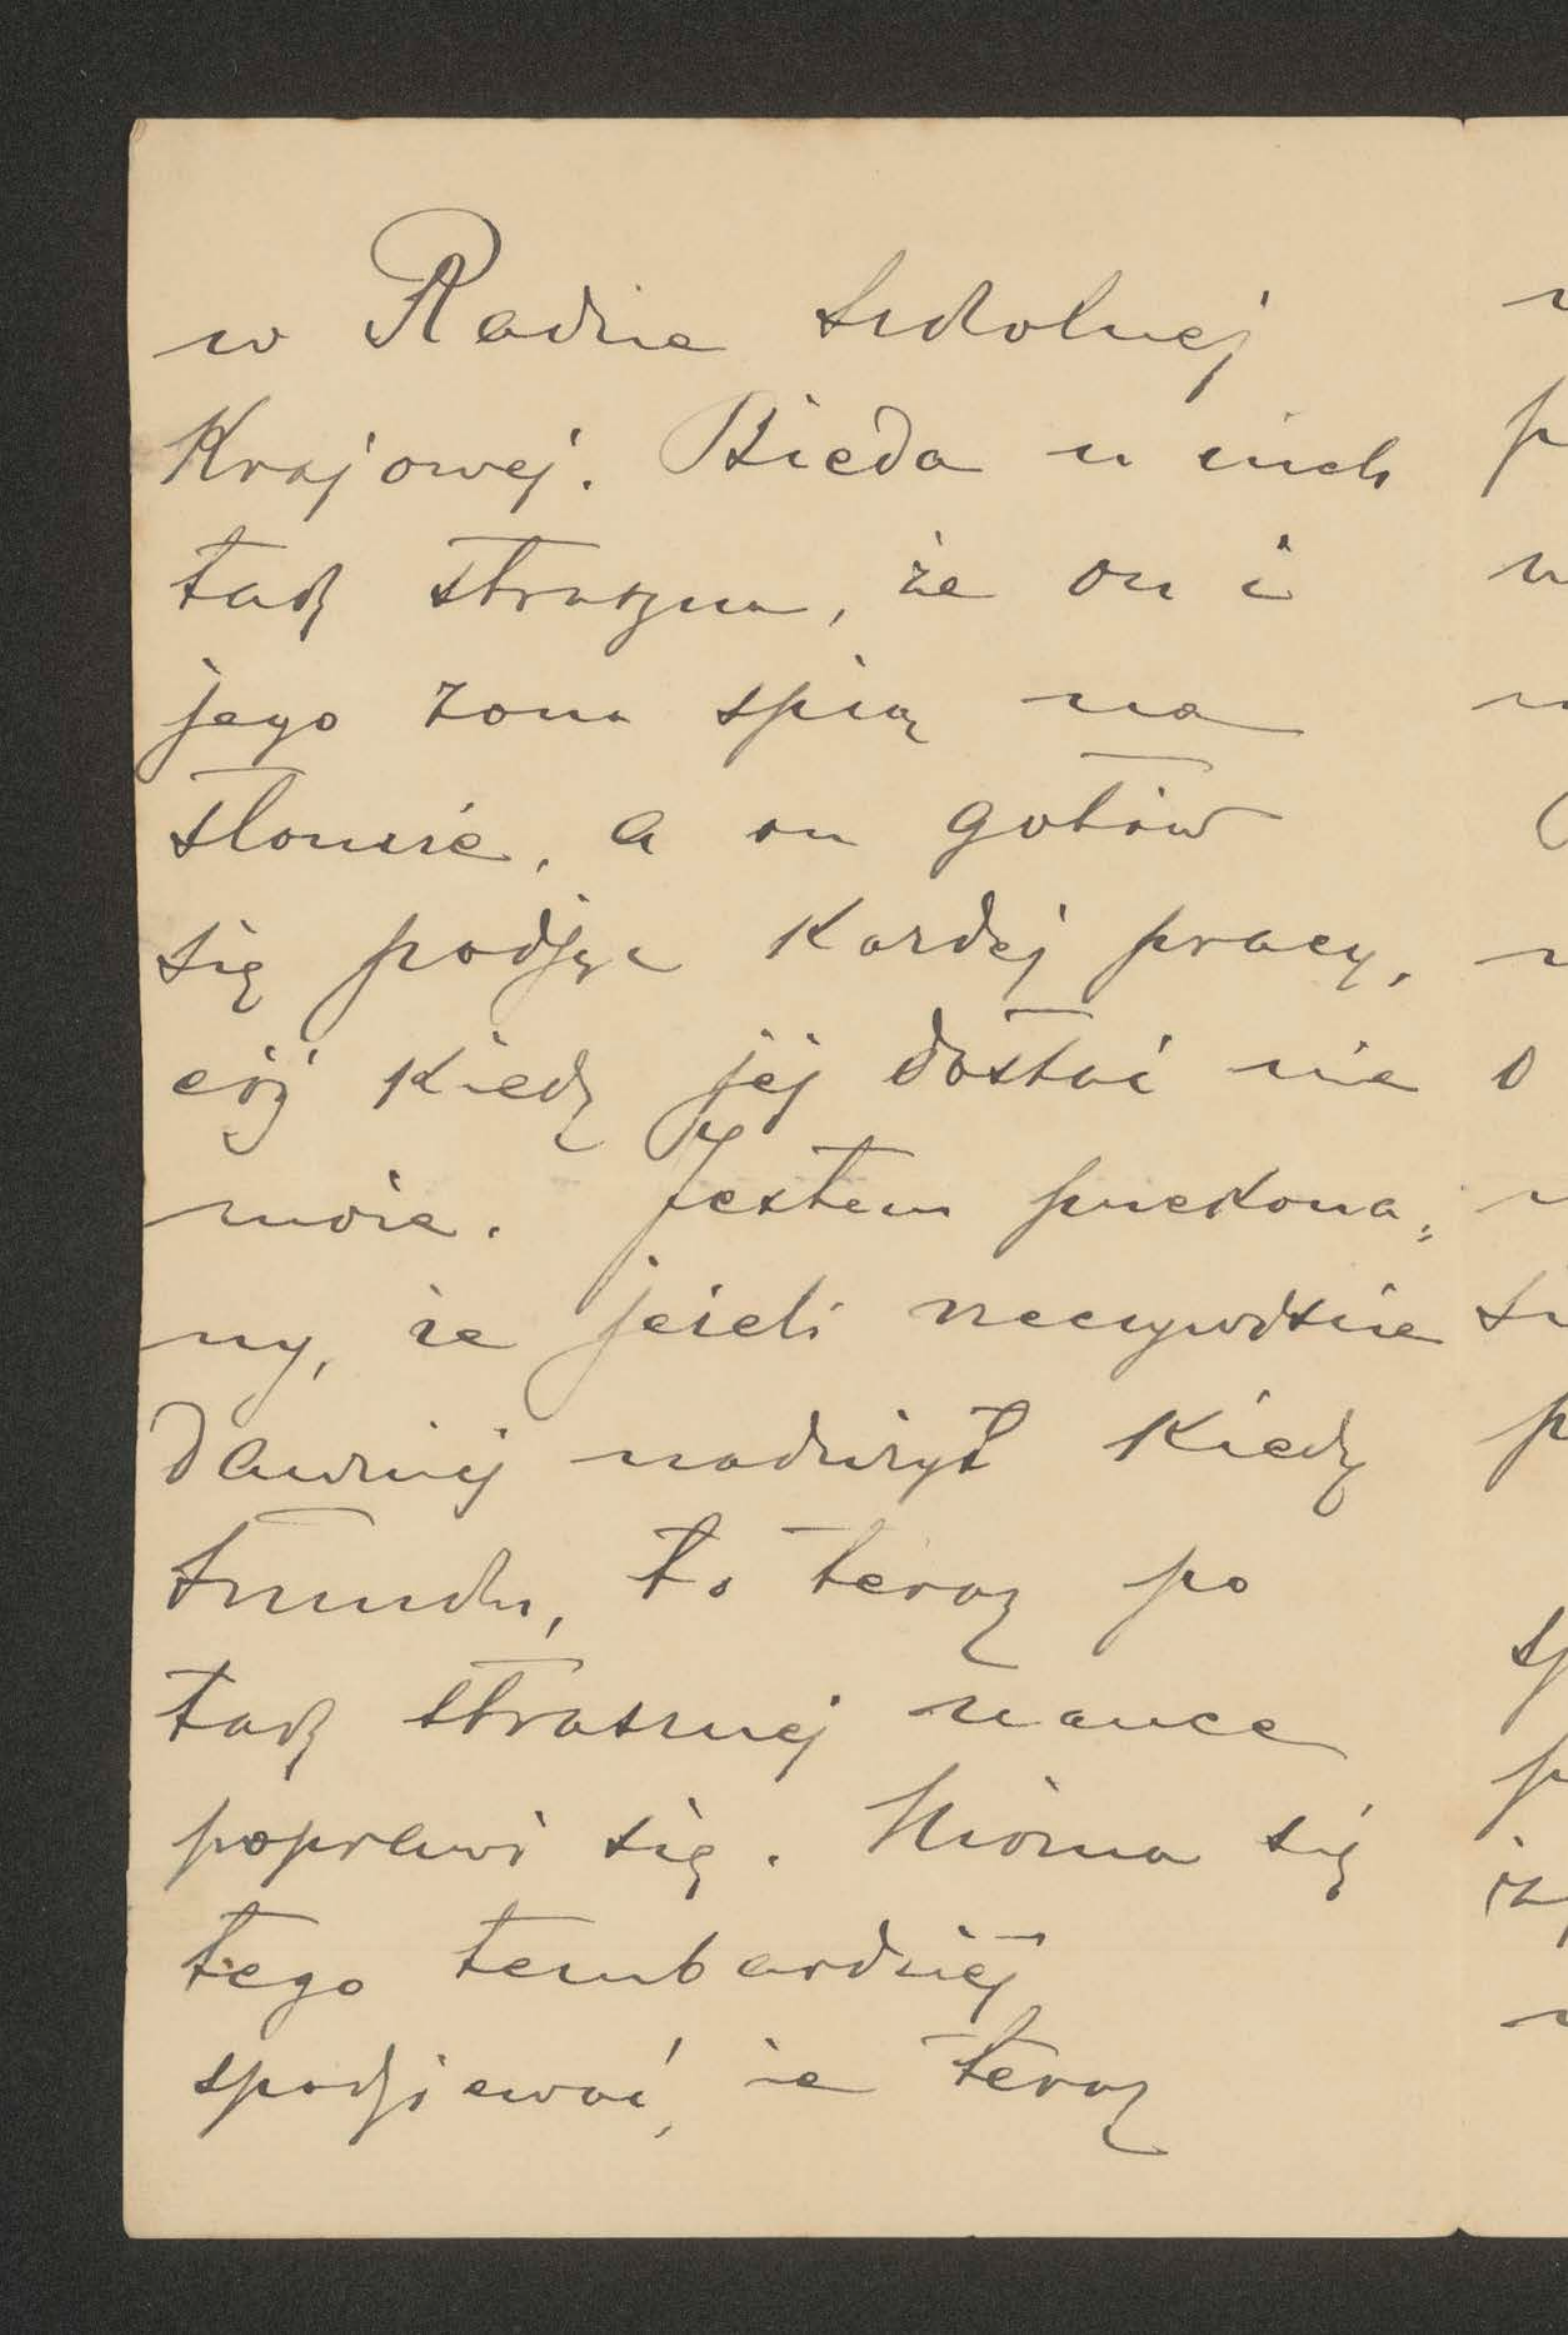 w Radzie szkolnej
Krajowej. Bieda u nich
tak straszna, że on i
jego żona śpią na
słomie, a on gotów
się podjąć każdej pracy,
cóż kiedy jej dostać nie
może. Jestem przekona=
ny, że jeżeli rzeczywiście
dawniej nadużył kiedy
trunku, to teraz po
tak strasznej nauce
poprawi się. Można się
tego tembardziej
spodziewać, że teraz